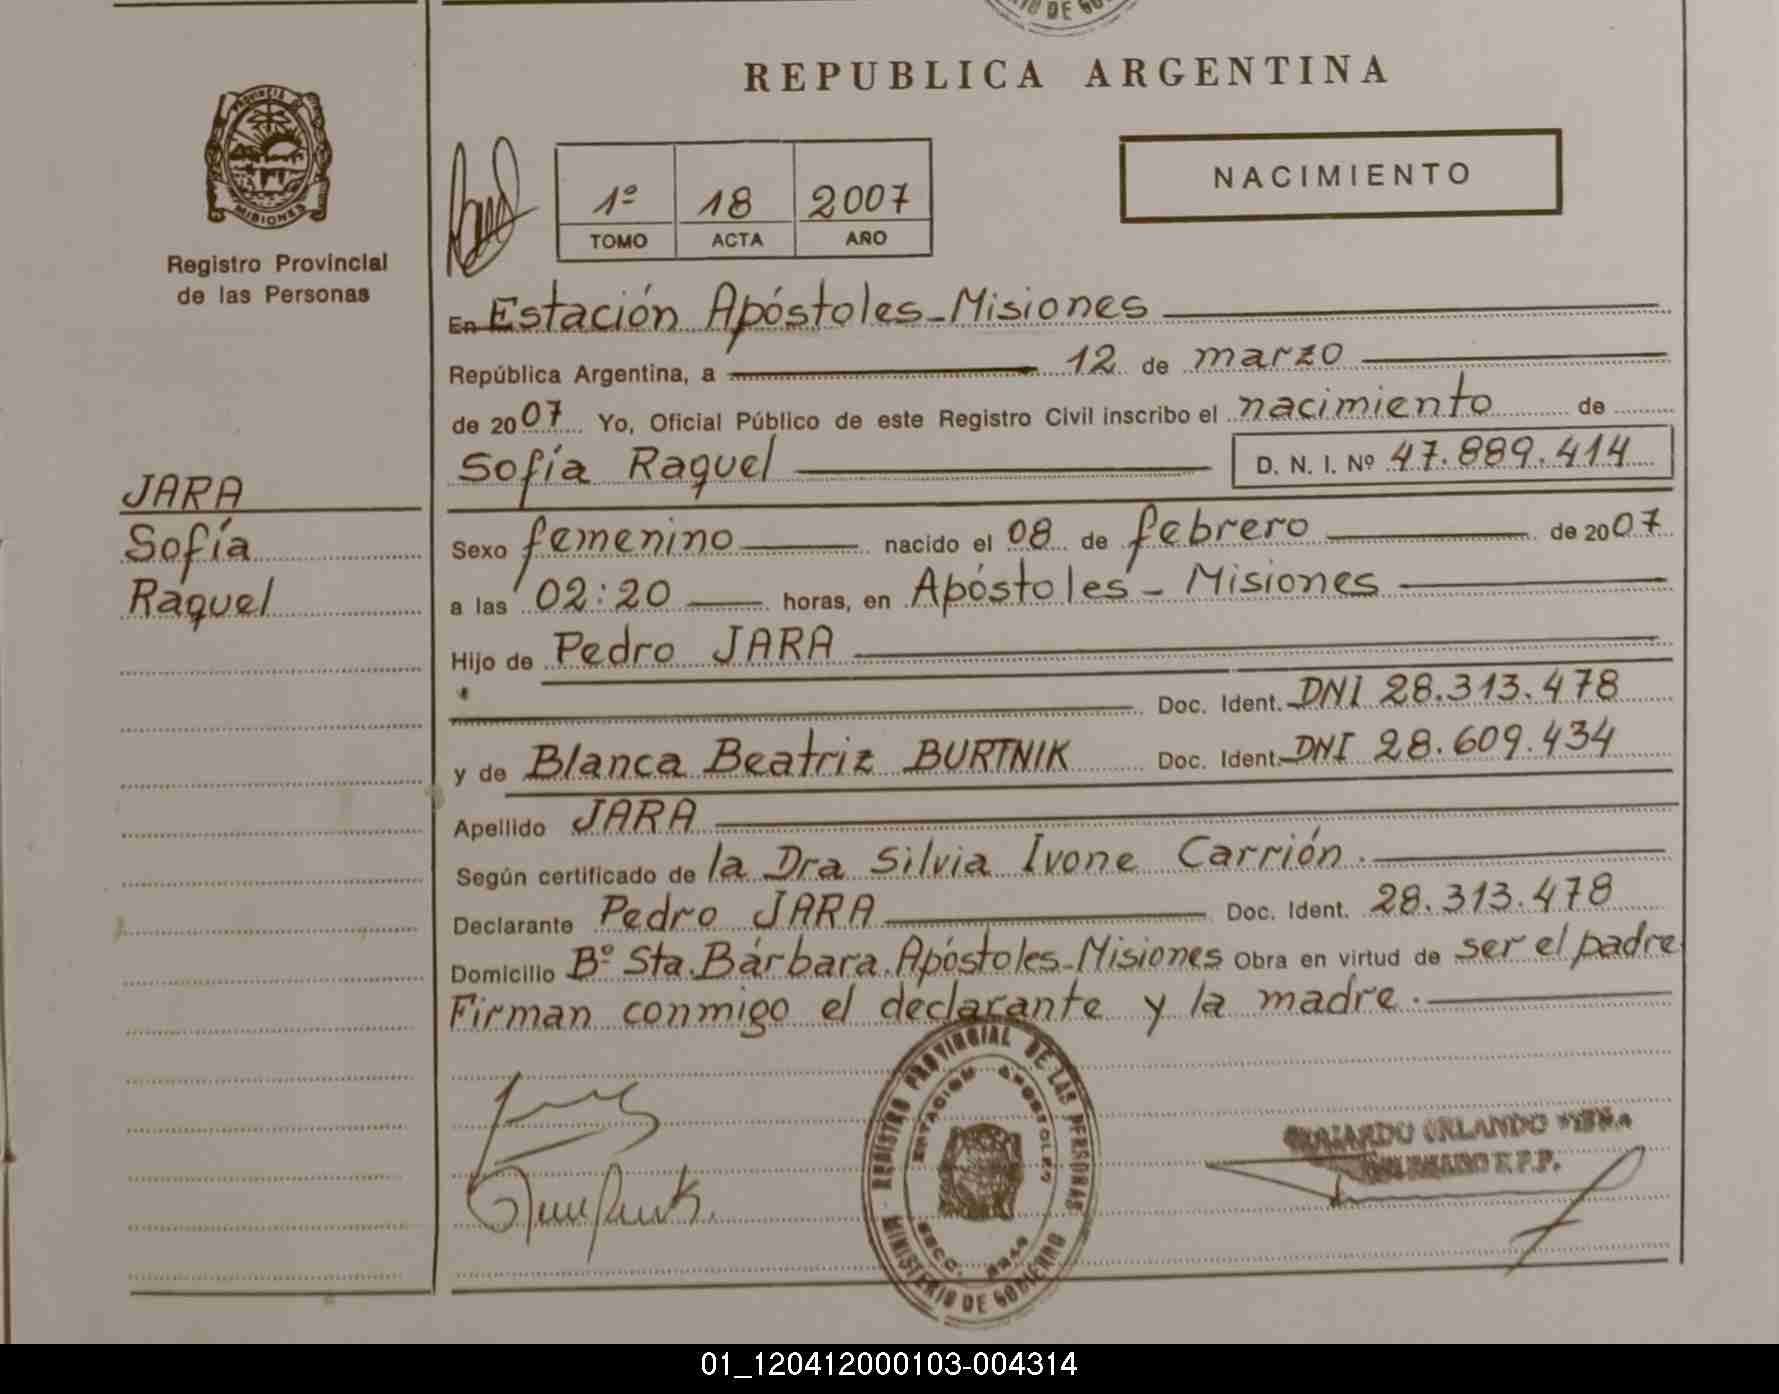 IO DE GO
REPUBLICA ARGENTINA
PROVINCIA DE
MISIONES
Registro Provincial
de las Personas
1º 18 2007
TOMO ACTA AÑO
NACIMIENTO
En Estación Apóstoles - Misiones
República Argentina, a 12 de marzo
de 2007 Yo, Oficial Público de este Registro Civil inscribo el nacimiento de
Sofía Raquel D. N. I. Nº 47.889.414
JARA
Sofía
Raquel
Sexo femenino nacido el 08 de febrero de 2007
a las 02:20 horas, en Apóstoles - Misiones
Hijo de Pedro JARA
Doc. Ident. DNI 28.313.478
y de Blanca Beatriz BURTNIK Doc. Ident. DNI 28.609.434
Apellido JARA
Según certificado de la Dra Silvia Ivone Carrión.
Declarante Pedro JARA Doc. Ident. 28.313.478
Domicilio Bº Sta. Bárbara. Apóstoles - Misiones Obra en virtud de ser el padre
Firman conmigo el declarante y la madre.
REGISTRO PROVINCIAL DE LAS PERSONAS
ESTACION APOSTOLES
MINISTERIO DE GOBIERNO
ORLANDO
01_120412000103-004314